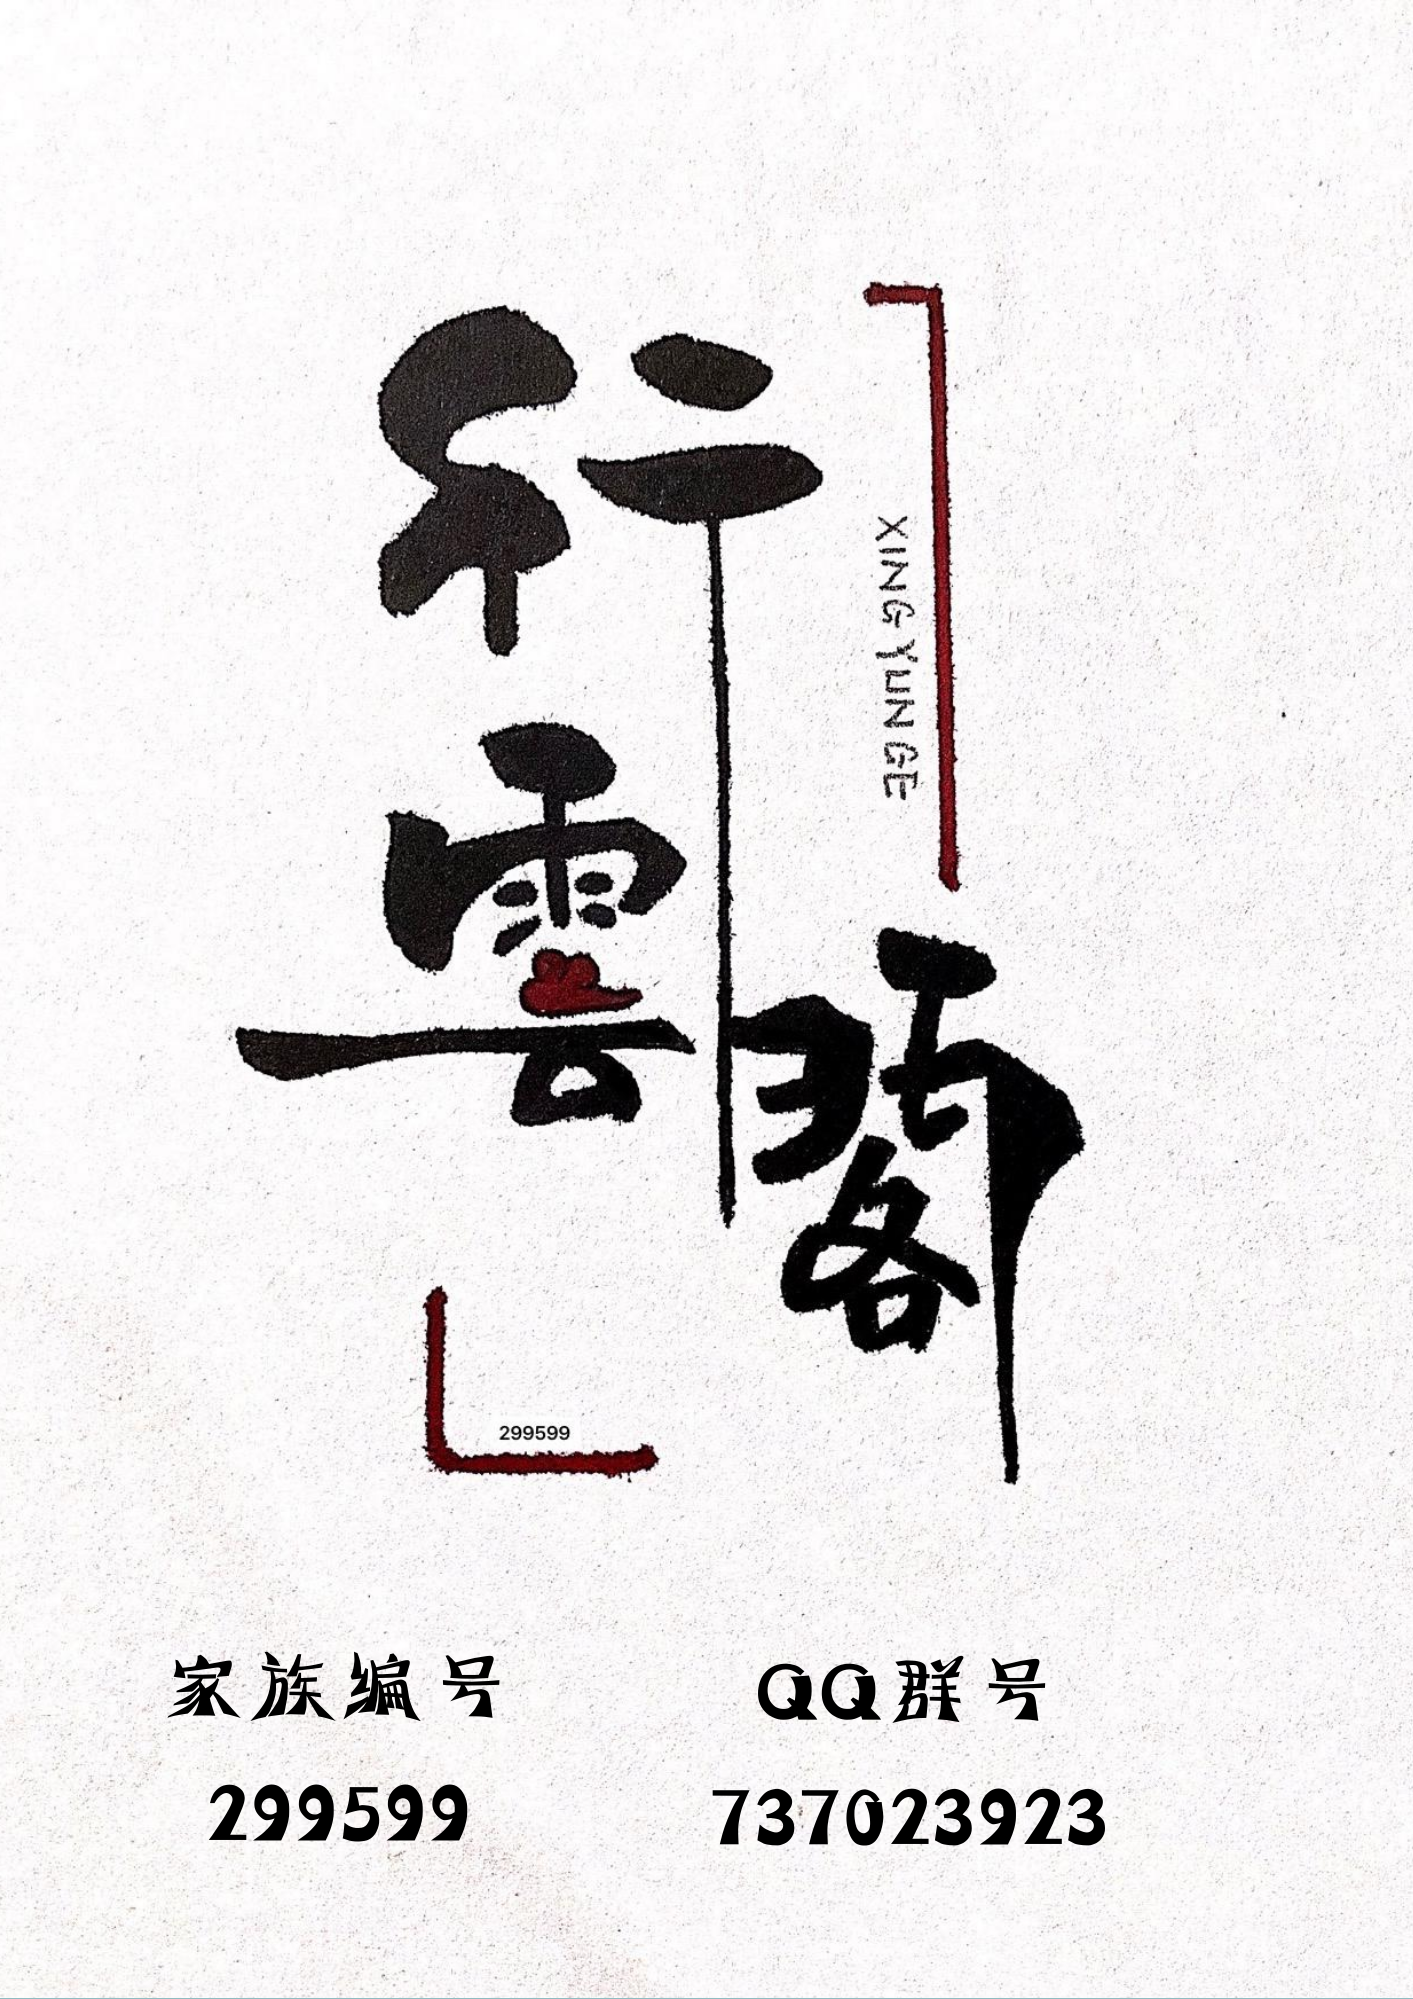 行雲閣
XING YUN GE
299599
家族编号
QQ群号
299599
737023923